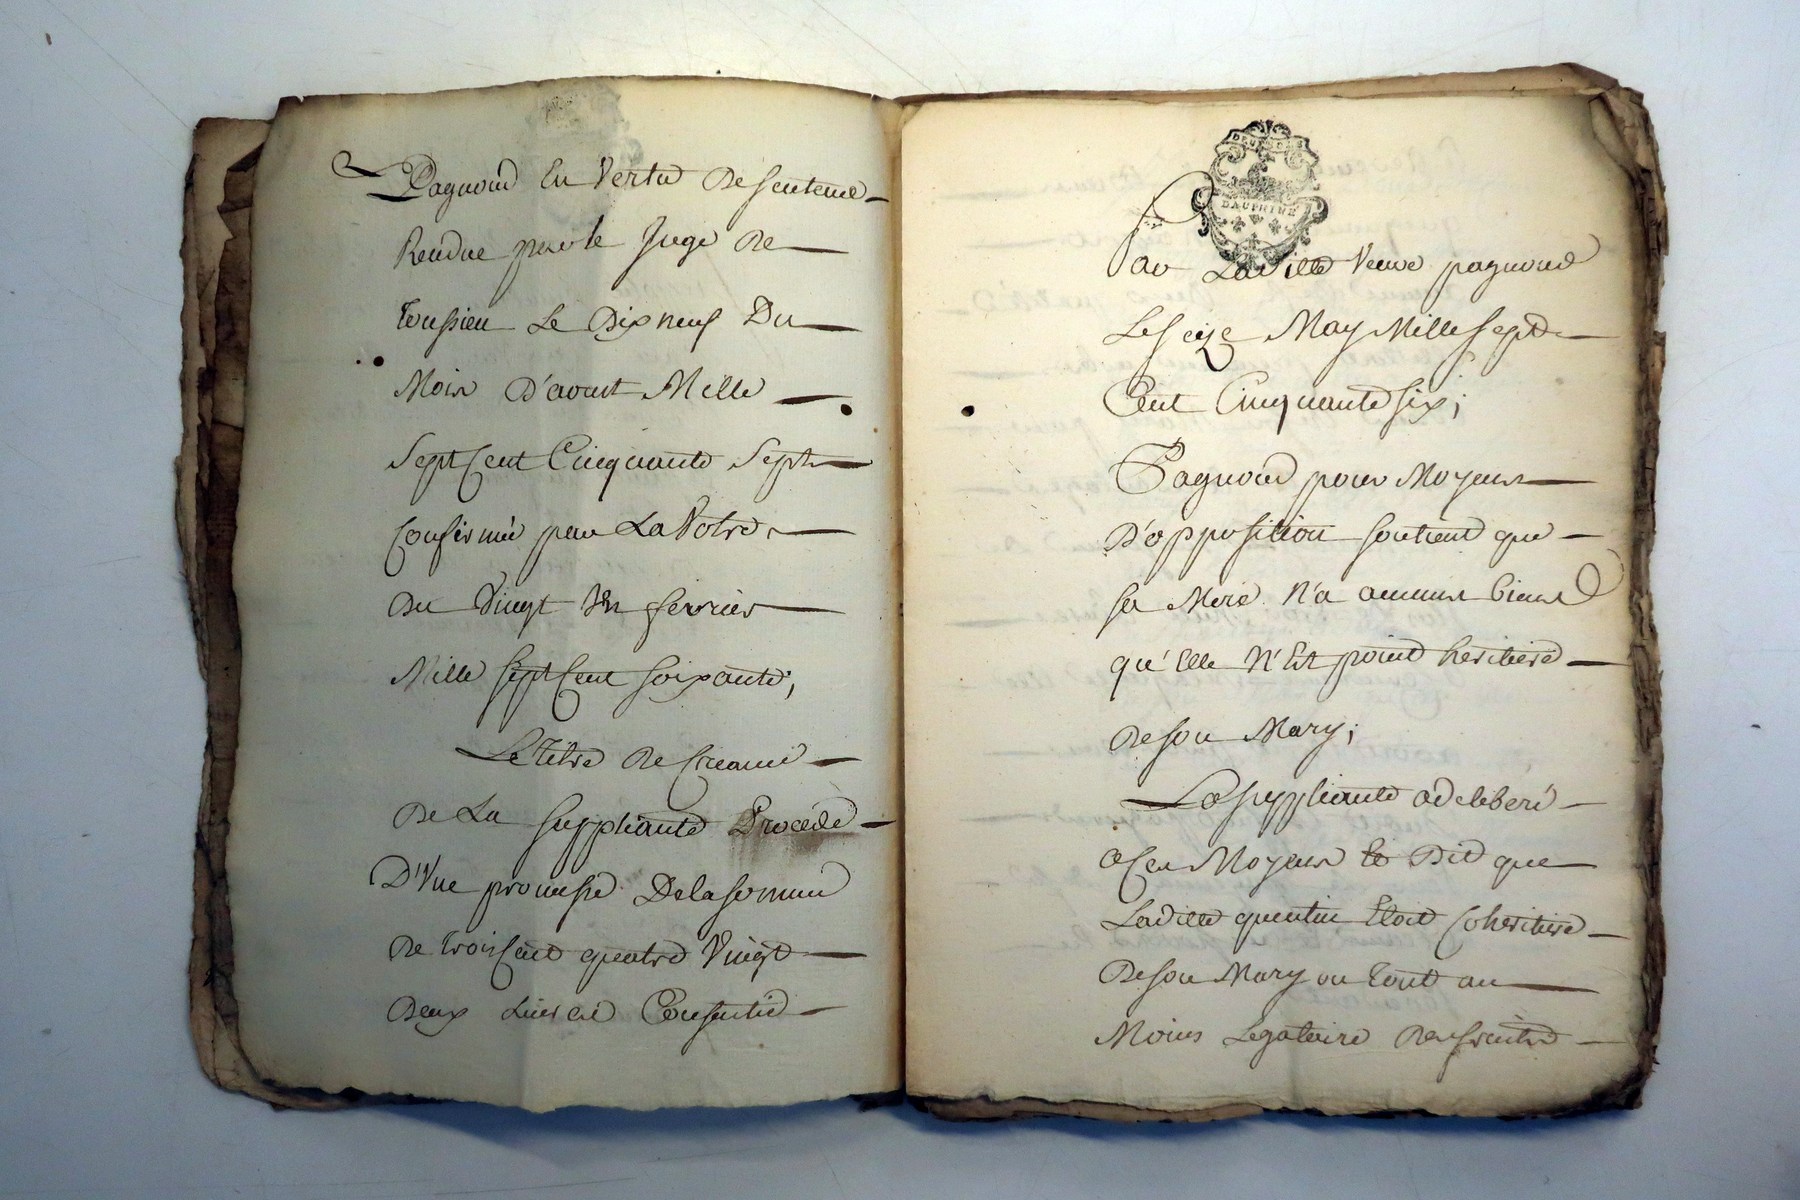 Pagnoud En Vertu De sentence
Rendue par le Juge De
Toussieu Le Dix neuf Du
Mois D'aoust Mille
Sept Cent Cinquante Sept
Confirmée par La Votre
Du Vingt Un fevrier
Mille Sept Cent soixante;
Le Titre De Creance
De La suppliante Procéde
D'Une promesse De la somme
De trois Cent quatre Vingt
Deux Livres Consentie
DAUPHINÉ
Par Laditte Veuve pagnoud
Le seize May Mille sept
Cent Cinquante six;
Pagnoud pour Moyens
D'opposition soutient que
sa Mere N'a aucuns biens
qu'elle N'Est point heritiere
De son Mary;
La suppliante a deliberé
a Ces Moyens Dit que
Laditte quentin Etoit Coheritiere
De son Mary ou tout au
Moins Legataire Des fruits